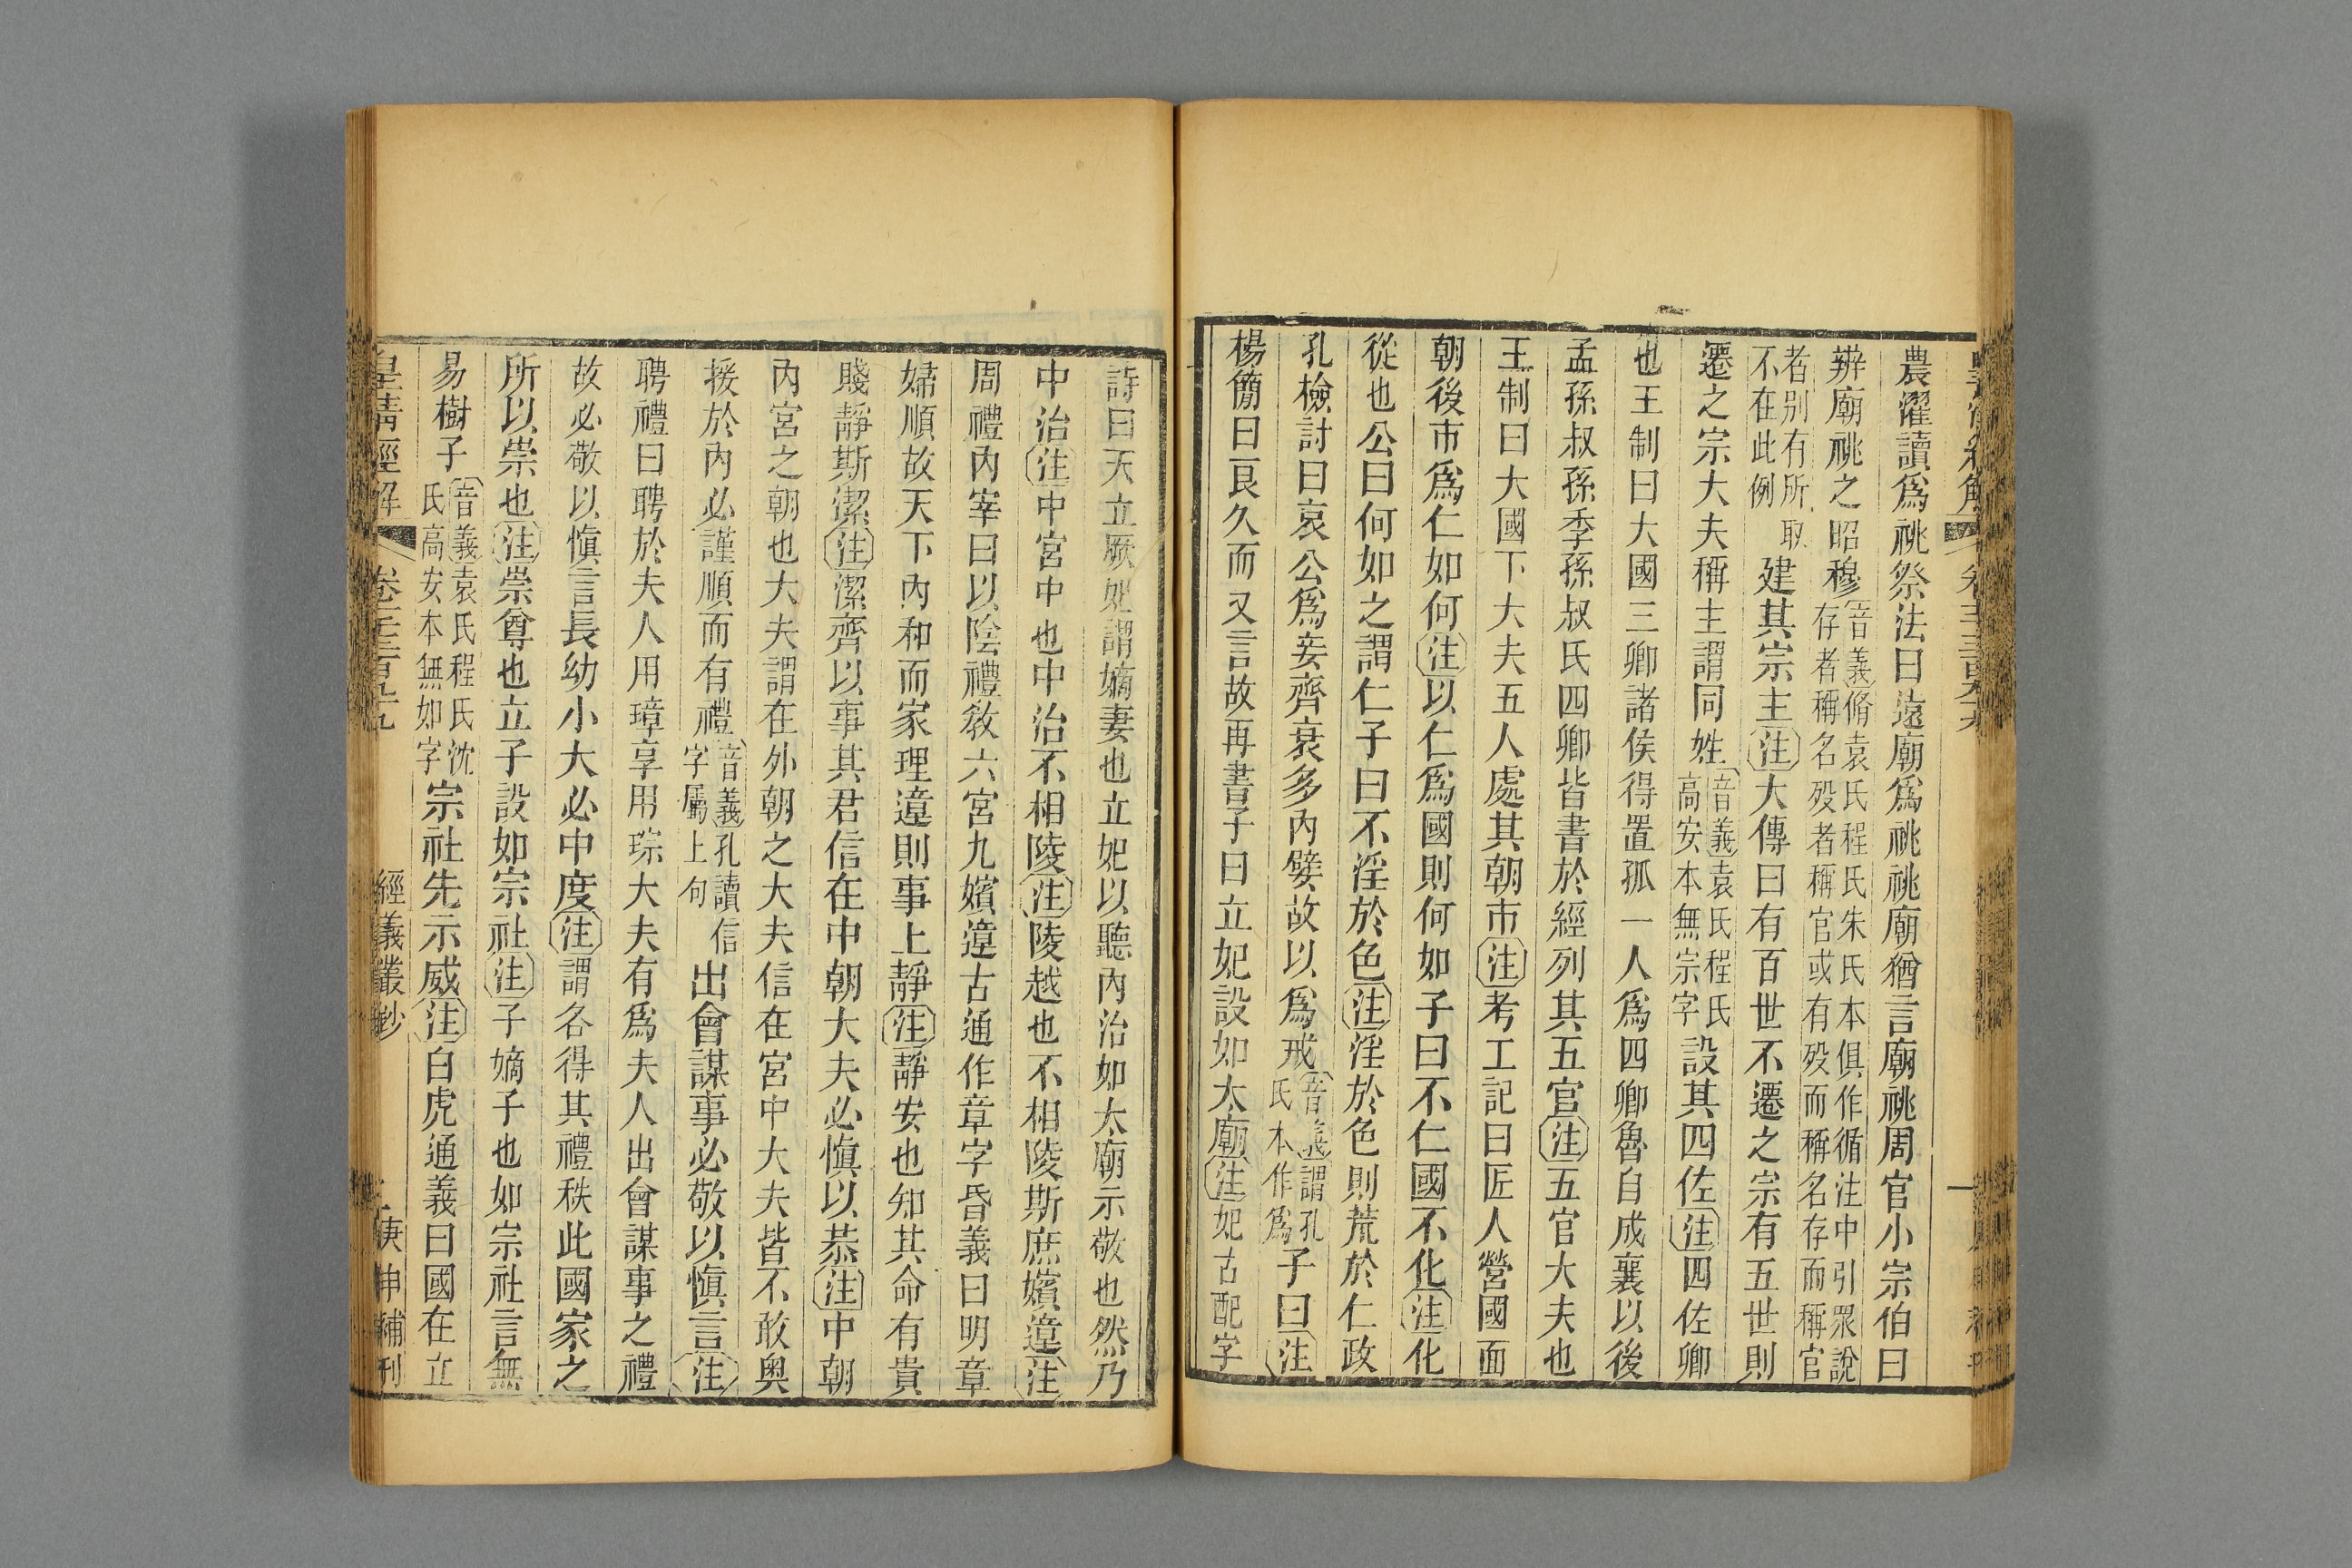 農濯讀爲祧祭法曰遠廟爲祧祧廟猶言廟祧周官小宗伯曰
辨廟祧之昭穆音義脩袁氏程氏朱氏本俱作循注中引眾說
存者稱名歿者稱官或有歿而稱名存而稱官
者别有所取
不在此例
建其宗主注大傳曰有百世不遷之宗有五世則
遷之宗大夫稱主謂同姓音義袁氏程氏
高安本無宗字
設其四佐注四佐卿
也王制曰大國三卿諸侯得置孤一人爲四卿魯自成襄以後
孟孫叔孫季孫叔氏四卿皆書於經列其五官注五官大夫也
王制曰大國下大夫五人處其朝市注考工記曰匠人營國面
朝後市爲仁如何注以仁爲國則何如子曰不仁國不化注化
從也公曰何如之謂仁子曰不淫於色注淫於色則荒於仁政
孔檢討曰哀公爲妾齊衰多內嬖故以爲戒音義謂孔
氏本作爲
子曰注
楊簡曰良久而又言故再書子曰立妃設如太廟注妃古配字
詩曰天立厥妃謂嫡妻也立妃以聽內治如太廟示敬也然乃
中治注中宮中也中治不相陵注陵越也不相陵斯庶嬪違注
周禮內宰曰以陰禮敎六宮九嬪違古通作章字昏義曰明章
婦順故天下內和而家理違則事上靜注靜安也知其命有貴
賤靜斯潔注潔齊以事其君信在中朝大夫必愼以恭注中朝
內宮之朝也大夫謂在外朝之大夫信在宮中大夫皆不敢奥
援於內必謹順而有禮音義孔讀信
字屬上句
出會謀事必敬以愼言注
聘禮曰聘於夫人用璋享用琮大夫有爲夫人出會謀事之禮
故必敬以愼言長幼小大必中度注謂各得其禮秩此國家之
所以崇也注崇尊也立子設如宗社注子嫡子也如宗社言無
易樹子音義袁氏程氏沈
氏高安本無如字
宗社先示威注白虎通義曰國在立
皇淸經解
經義叢鈔
庚申補刊